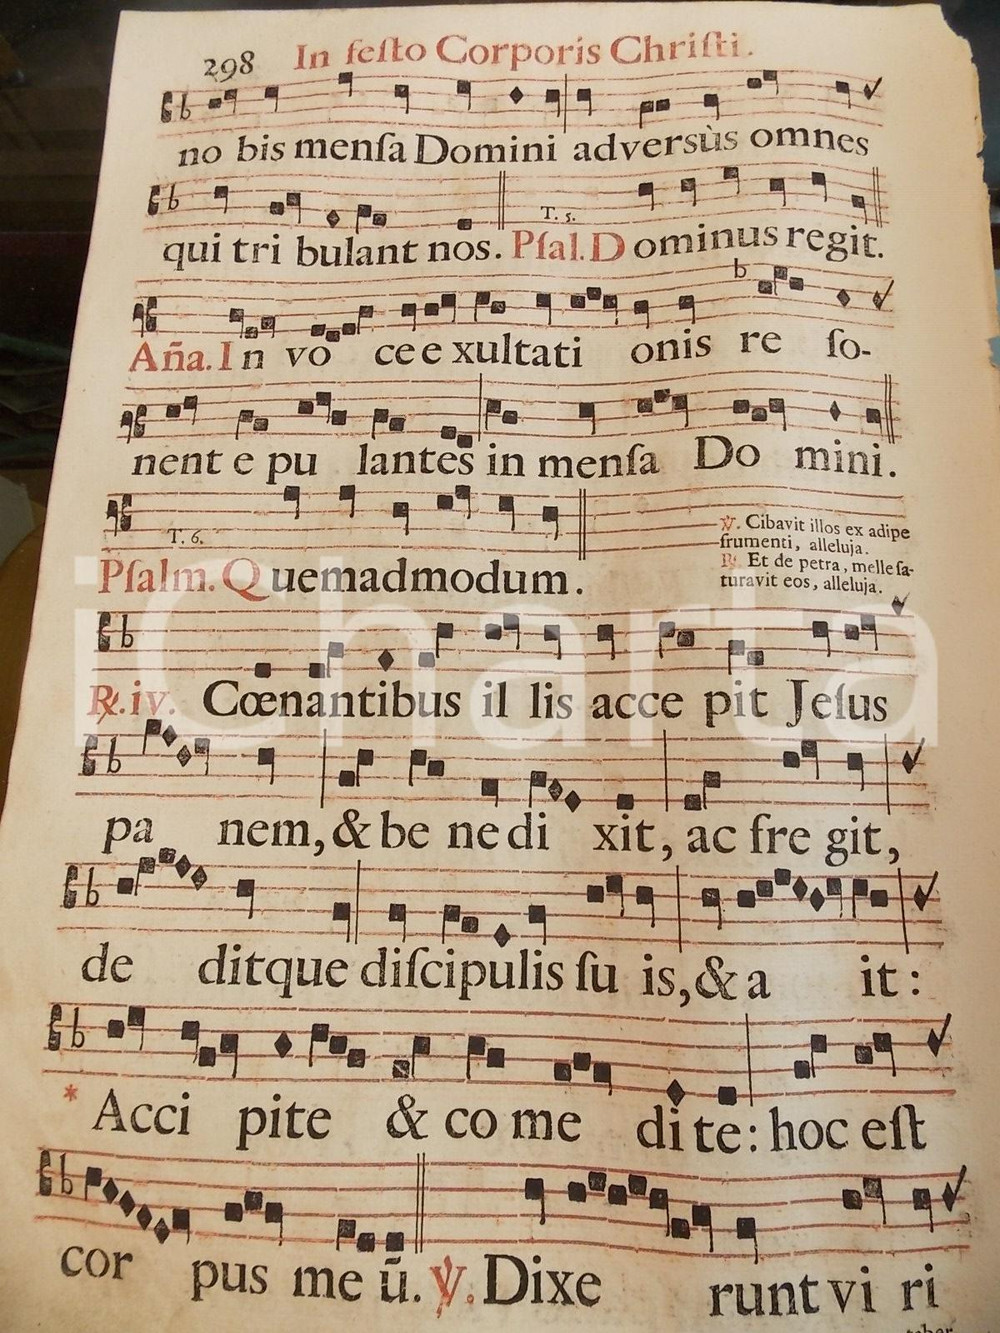 298 In feſto Corporis Chriſti.
no bis menſa Domini adversùs omnes
T. 5.
qui tri bulant nos. Pſal. D ominus regit.
Aña. I n vo ce e xultati onis re ſo-
nent e pu lantes in menſa Do mini.
T. 6.
Pſalm. Q uemadmodum.
℣. Cibavit illos ex adipe
frumenti, alleluja.
℟. Et de petra, melle ſa-
turavit eos, alleluja.
iCharta
℟. iv. Cœnantibus il lis acce pit Jeſus
pa nem, & be ne di xit, ac fre git,
de ditque diſcipulis ſu is, & a it:
* Acci pite & co me di te: hoc eſt
cor pus me ũ. ℣. Dixe runt vi ri